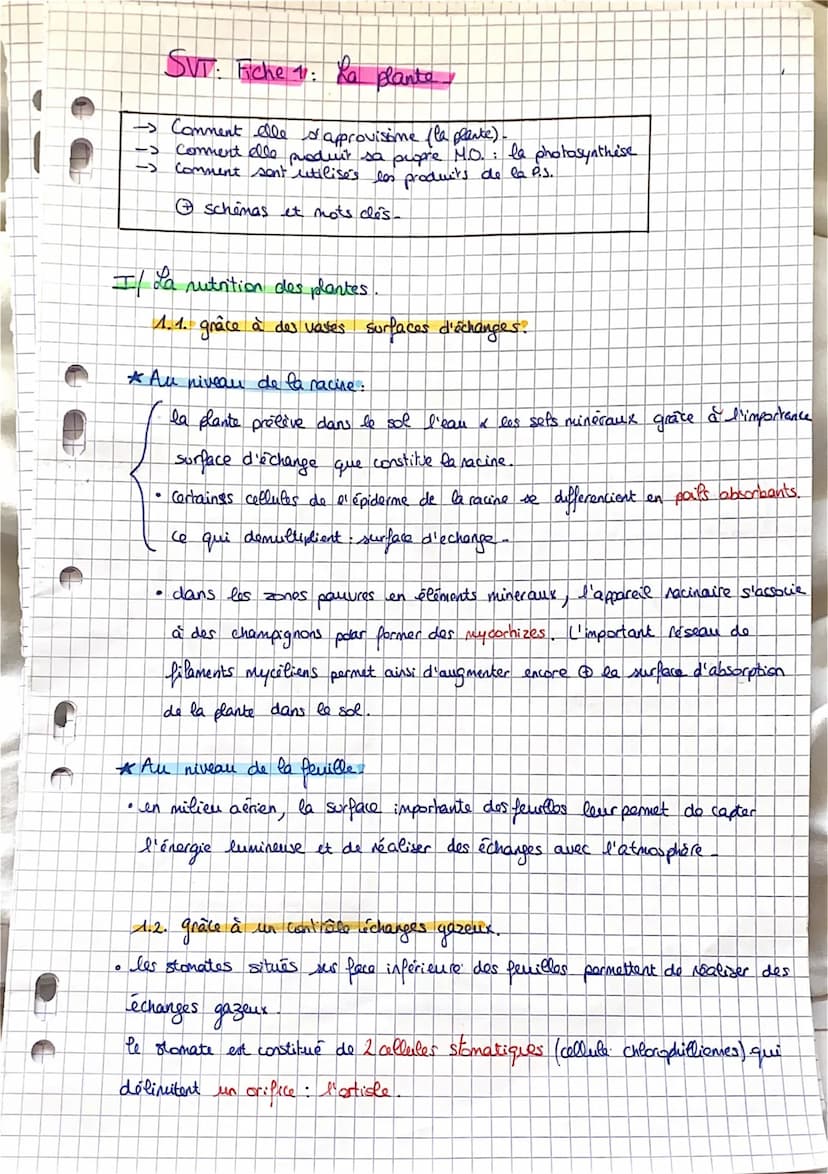 SVT: Fiche 1: La plante
→ Comment elle s'approvisime (la plante).
→ Comment elle produit sa propre M.O. : la photosynthèse
→ Comment sont utilisés les produits de la P.S.
⊕ schémas et mots clés.
I/ La nutrition des plantes.
1.1. grâce à des vastes surfaces d'échanges:
* Au niveau de la racine:
la plante prélève dans le sol l'eau & les sels minéraux grâce à l'importance
surface d'échange que constitue la racine.
• Certaines cellules de l'épiderme de la racine se differencient en poils absorbants.
ce qui demultiplient : surface d'echange.
• dans les zones pauvres en éléments mineraux, l'appareil racinaire s'associe
à des champignons pour former des mycorhizes. L'important réseau de
filaments mycéliens permet ainsi d'augmenter encore ⊕ la surface d'absorption
de la plante dans le sol.
* Au niveau de la feuille:
• en milieu aérien, la surface importante des feuilles leur permet de capter
l'énergie lumineuse et de réaliser des échanges avec l'atmosphère.
1.2. grâce à un contrôle échanges gazeux.
• les stomates situés sus face inférieure des feuilles permettent de réaliser des
échanges gazeux.
le stomate est constitué de 2 cellules stomatiques (cellule chlorophilliennes) qui
délimitent un orifice : l'ostiole.